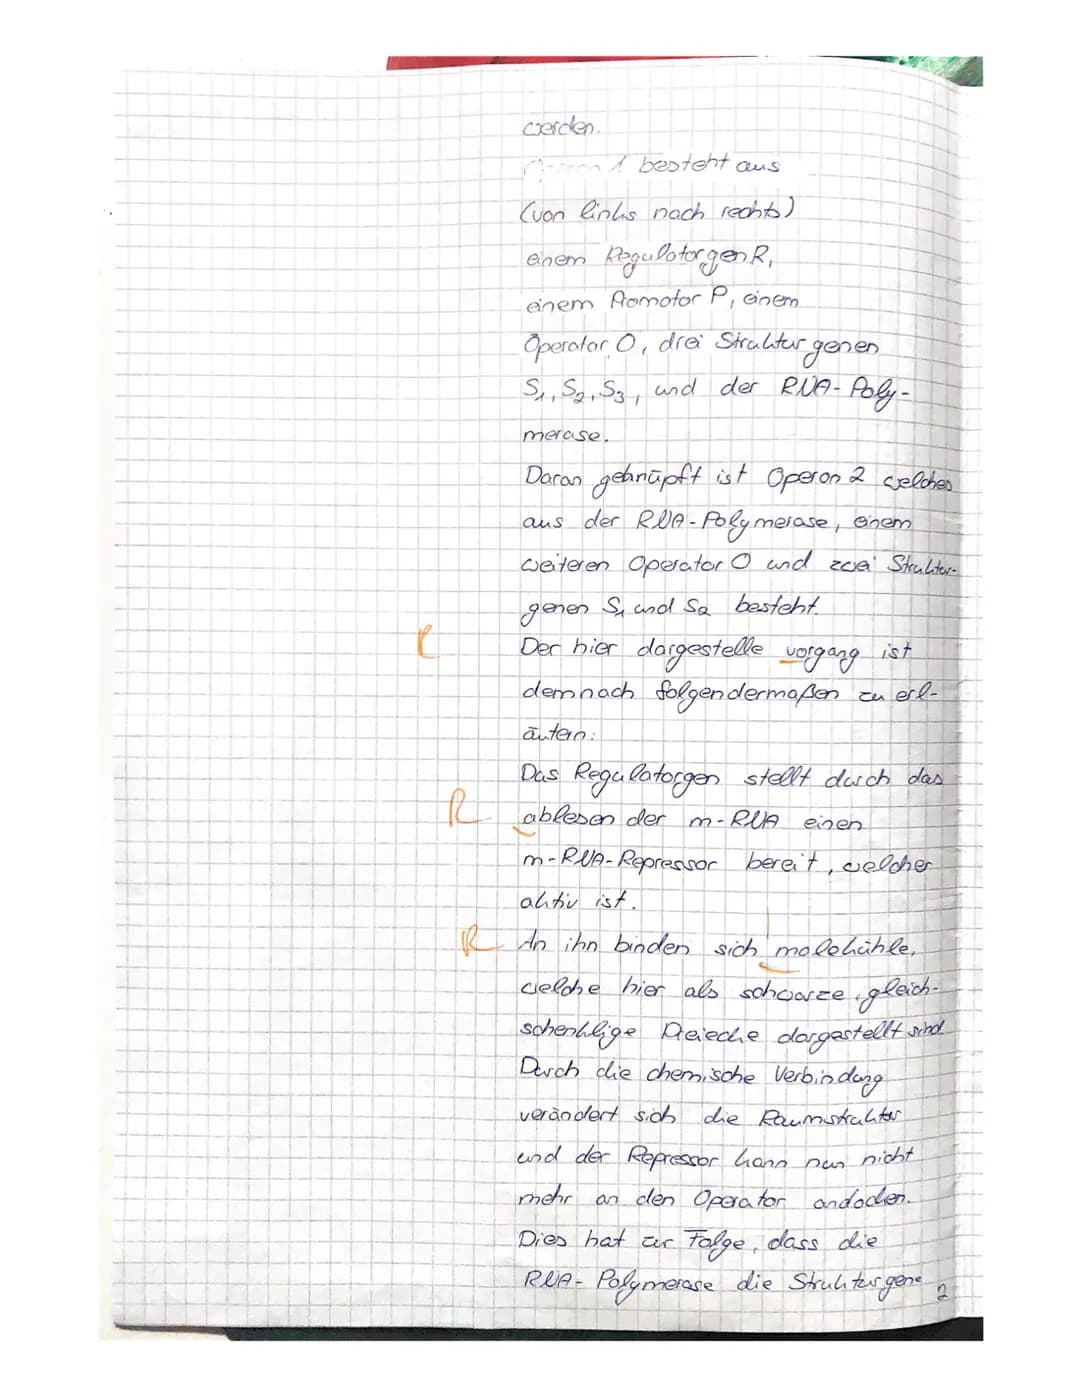 werden.
1 besteht aus
(von links nach rechts)
einem Regulatorgen R,
einem Promotor P, einem
Operator O, drei Strukturgenen
S1, S2, S3, und der RNA-Poly-
merase.
Daran geknüpft ist Operon 2 welches
aus der RNA-Polymerase, einem
weiteren Operator O und zwei Struktur-
genen S1 und S2 besteht.
R Der hier dargestelle vorgang ist
demnach folgendermaßen zu erl-
äutern:
Das Regulatorgen stellt durch das
R ablesen der m-RNA einen
m-RNA-Repressor bereit, welcher
aktiv ist.
R An ihn binden sich molekühle,
welche hier als schwarze, gleich-
schenklige Dreiecke dargestellt sind.
Durch die chemische Verbindung
verändert sich die Raumstruktur
und der Repressor kann nun nicht
mehr an den Operator andocken.
Dies hat zur Folge, dass die
RNA-Polymerase die Strukturgene
2